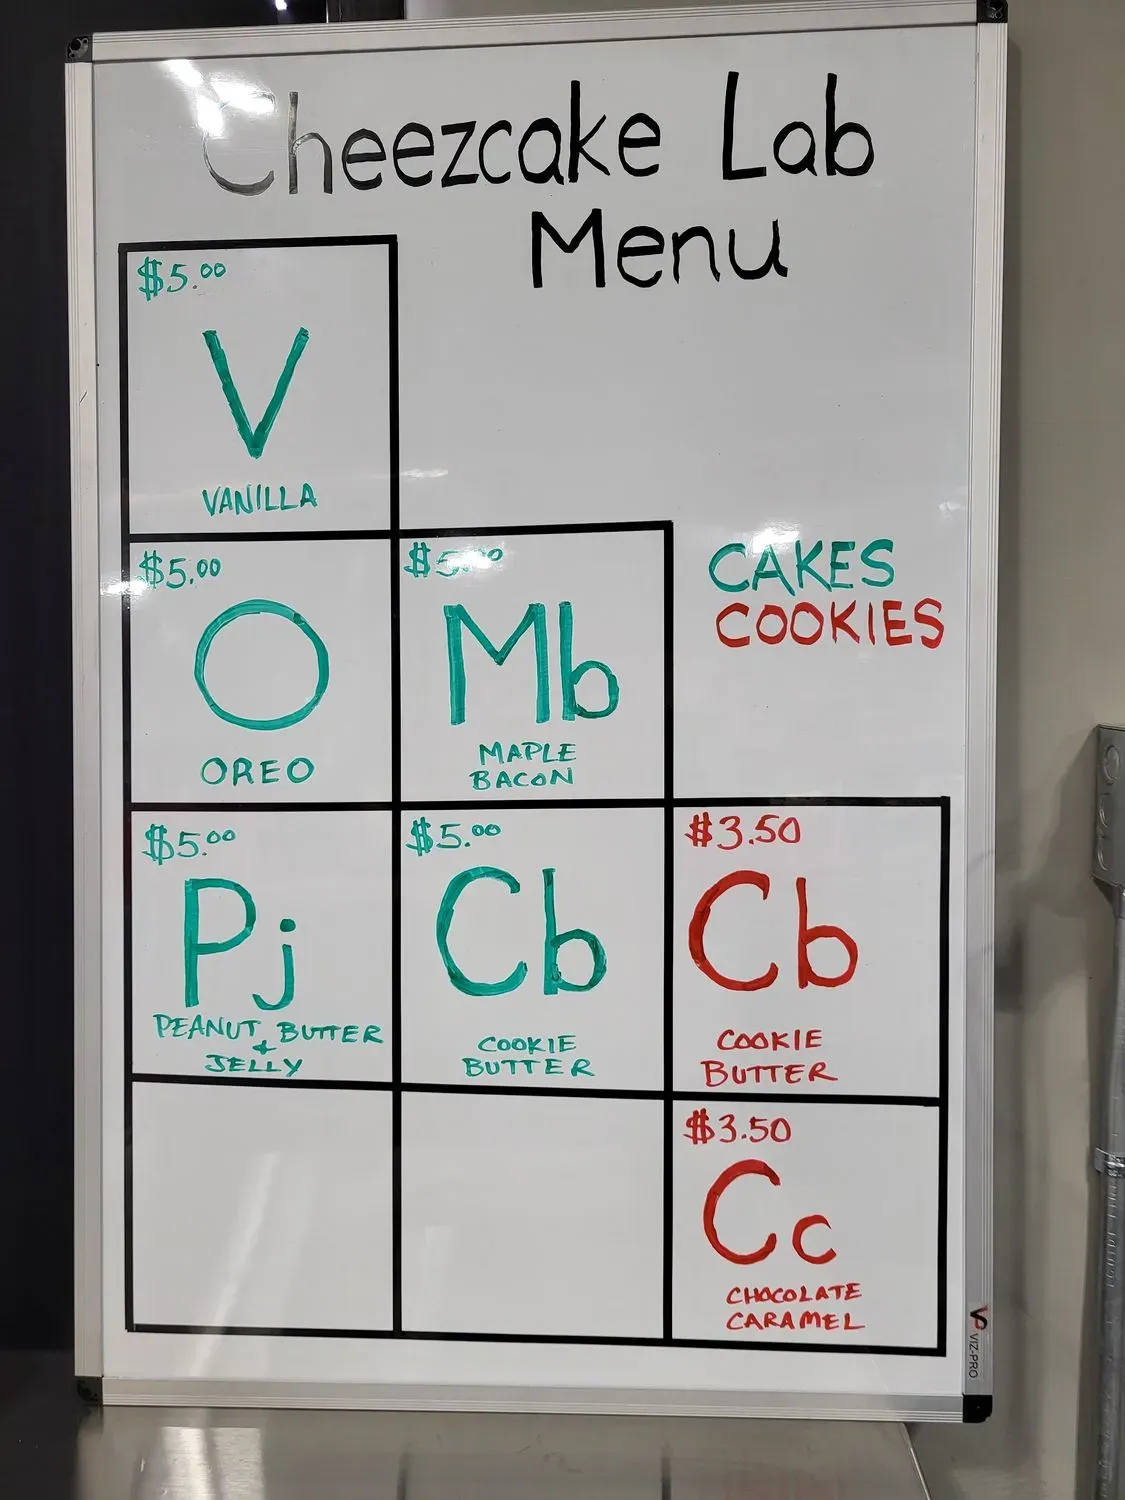 Cheezcake Lab
Menu
$5.00
V
VANILLA
$5.00
O
OREO
$5.00
Mb
MAPLE
BACON
CAKES
COOKIES
$5.00
Pj
PEANUT BUTTER
&
JELLY
$5.00
Cb
COOKIE
BUTTER
$3.50
Cb
COOKIE
BUTTER
$3.50
Cc
CHOCOLATE
CARAMEL
VIZ-PRO